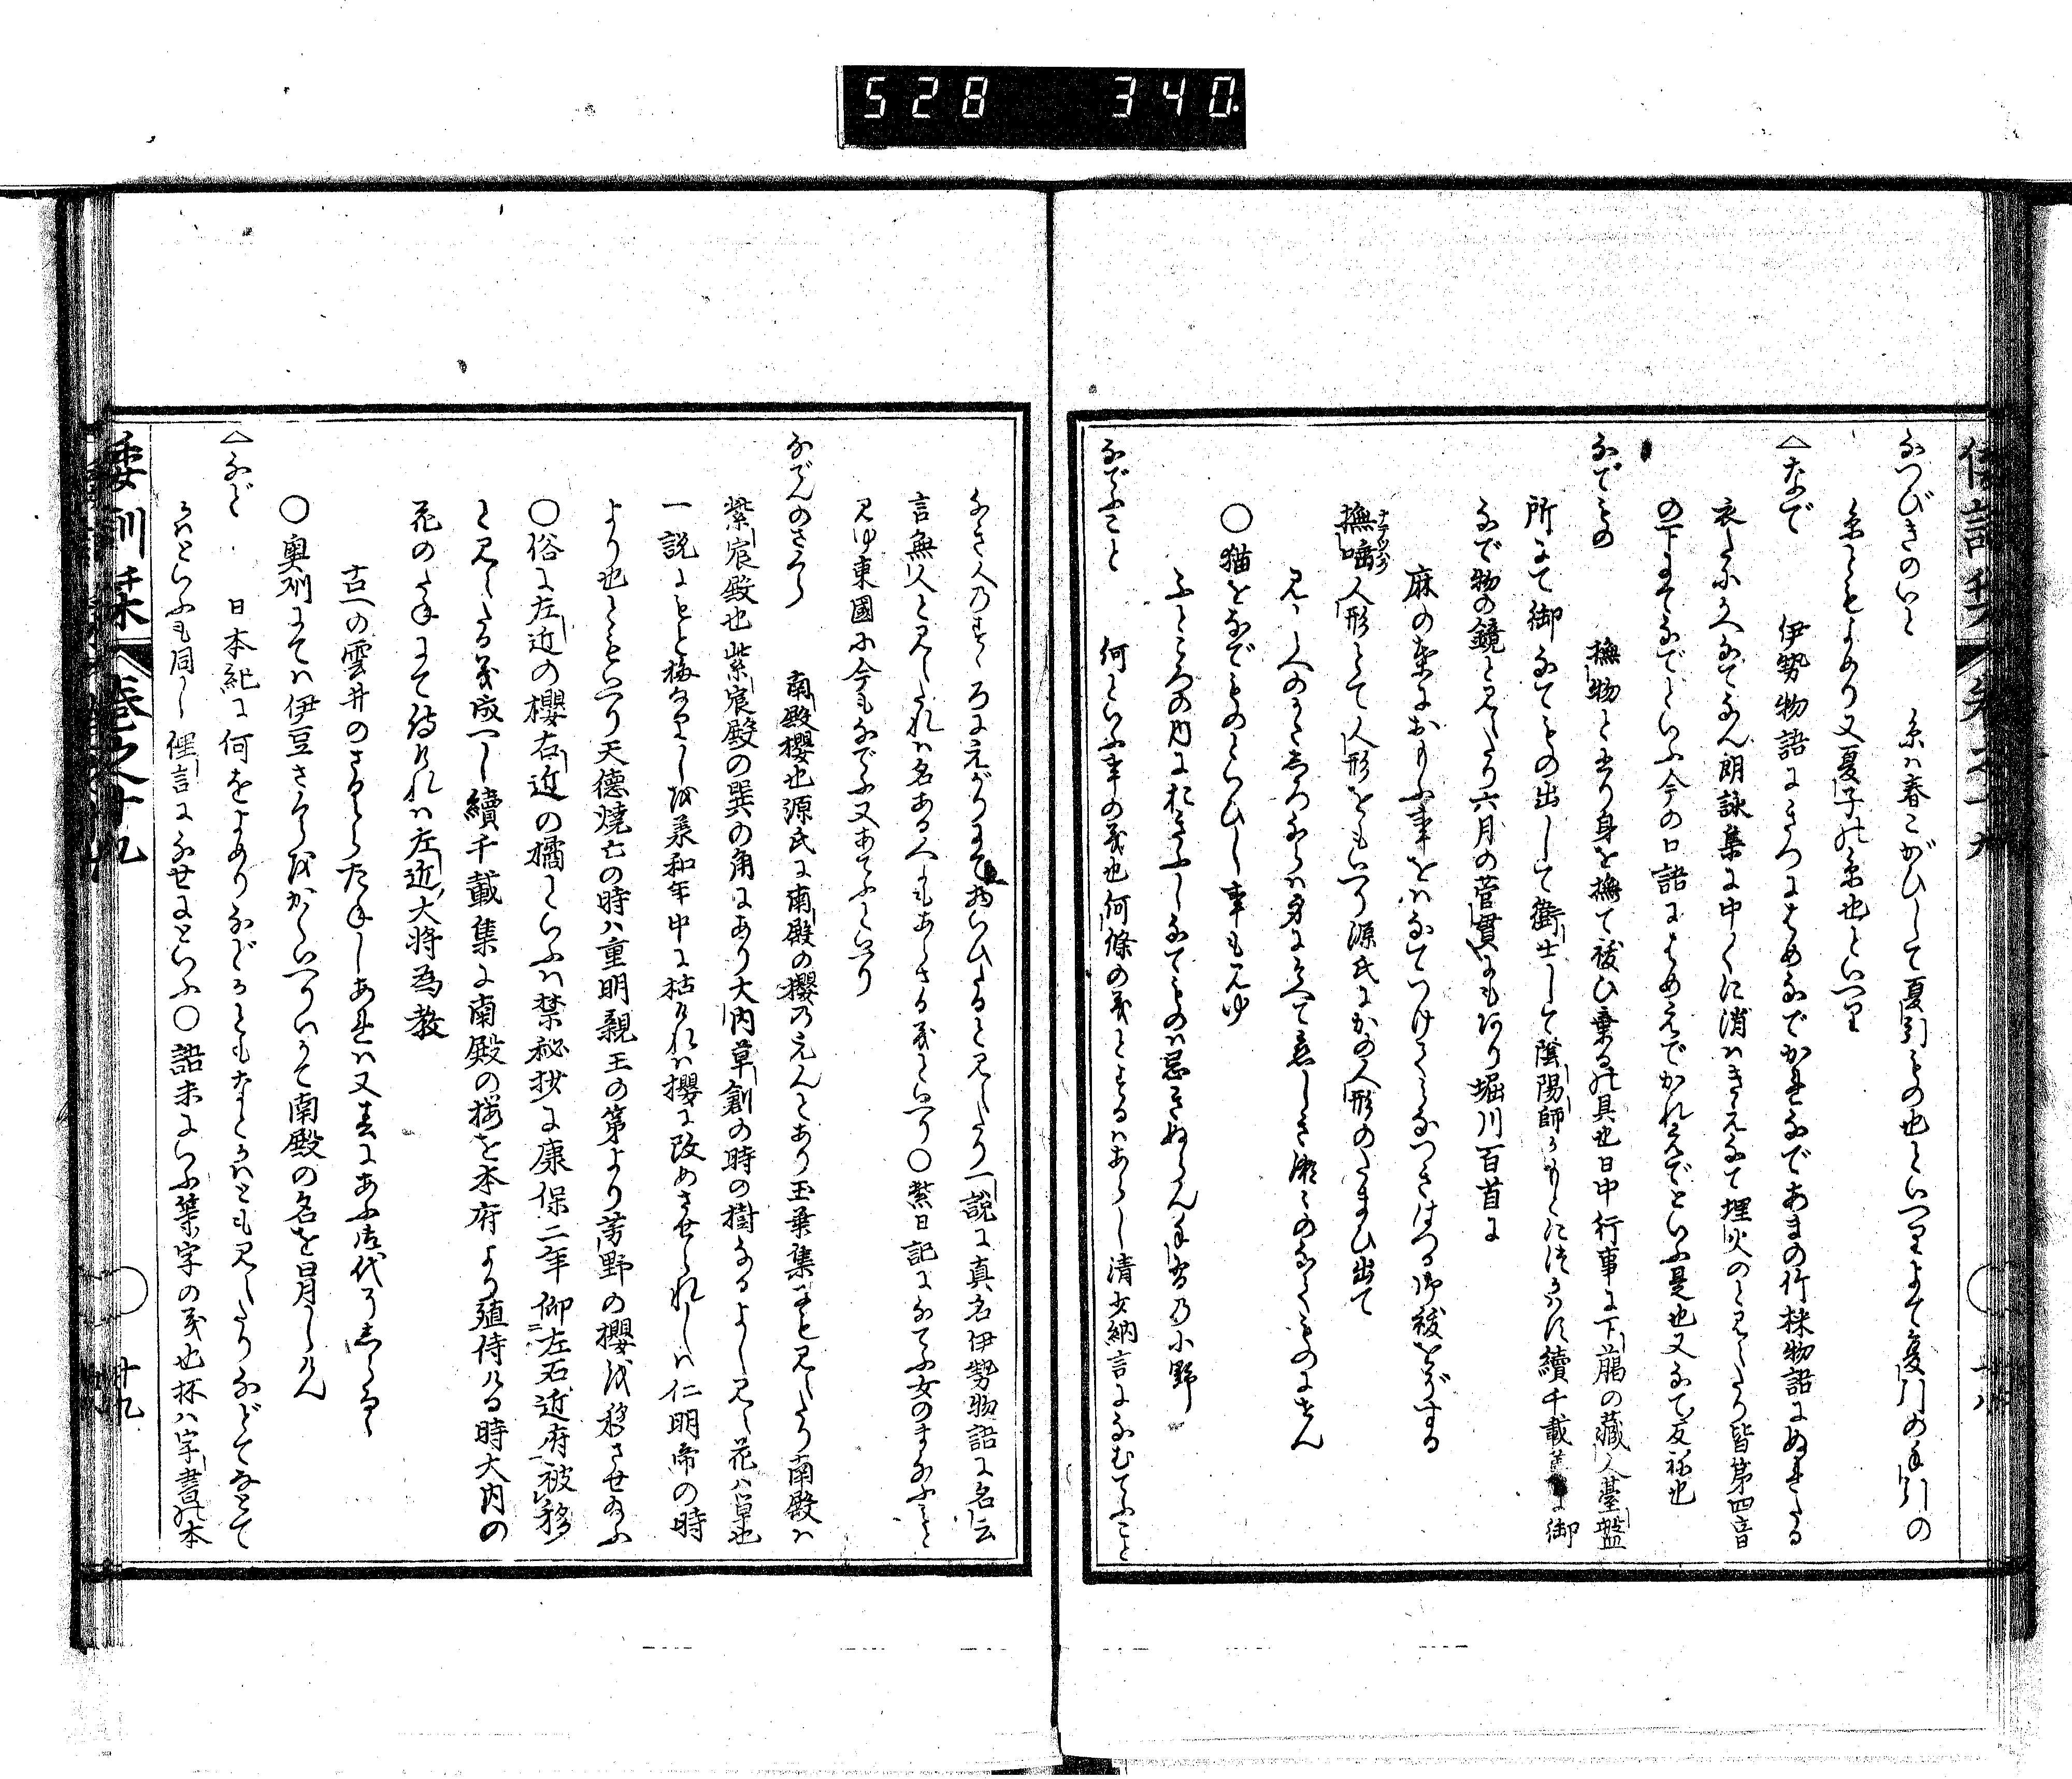 528 340
倭訓栞 巻之十九
なつびきのいと 糸ハ春こがひして夏引もの也といへりよて夏引の手引の
糸ともよめり又夏子の糸也といへり
△なで 伊勢物語にきつにはめなでかれなであまの行株物語にぬれたる
衣たにかへなてなん朗詠集に中々に消ハきえなて埋火のと見えたり皆第四音
の下にてなでといふ今の口語にはめえでかれえでといふ是也又なて反祢也
なでもの 撫物と書り身を撫て祓ひ棄る具也日中行事に下﨟の蔵人台盤
所にて御なてもの出して衛士して陰陽師かもとにつかはす續千載集に御
なで物の鏡と見えたり六月の菅貫にもあり堀川百首に
麻の葉におもふ事をハなてつけてみなつきはつる御祓をぞする
撫噃人形とて人形をもいへり源氏にかの人形のたまひ出て
見し人のかたしろならハ身にそへて恋しき瀬々のなてものにせん
○猫をなでものといひし事も見ゆ
ふところの内におきふしなてものハ忌きぬらん手習乃小野
なでふこと 何といふ事の義也何條の義とするハあらし清少納言になむてふこと
なき人乃すゝろにえがりにて物いひたると見えたり一説に真名伊勢物語に名云
言無人と見えたれハ名ある人にもあらさる義といへり○紫日記になてふ女のまなふミと
見ゆ東國に今もなでふ又あてふといへり
なでんのさくら 南殿櫻也源氏に南殿の櫻乃えんとあり玉葉集にも見えたり南殿ハ
紫宸殿也紫宸殿の巽の角にあり大内草創の時の樹なるよし見ゆ花ハ単也
一説にもと梅なりしを承和年中に枯けれハ櫻に改めさせられしハ仁明帝の時
より也ともいへり天徳焼亡の時ハ重明親王の第より芳野の櫻を移させ給ふ
○俗に左近の櫻右近の橘といふハ禁秘抄に康保二年仰左右近府被移
と見えたる義成へし續千載集に南殿の桜を本府より殖侍ける時大内の
花のたねにて侍けれハ左近大将為教
古への雲井のさくらたねしあれハ又春にあふ御代そしらるゝ
○奥州にてハ伊豆さくらをかくいへりいかて南殿の名を冒しけん
△など 日本紀に何をよめりなどかともなとかハとも見えたりなどてなとて
かハといふも同し俚言になせにといふ○語末にいふ等字の義也抔ハ字書の本
倭訓栞 巻之十九
十八
十九